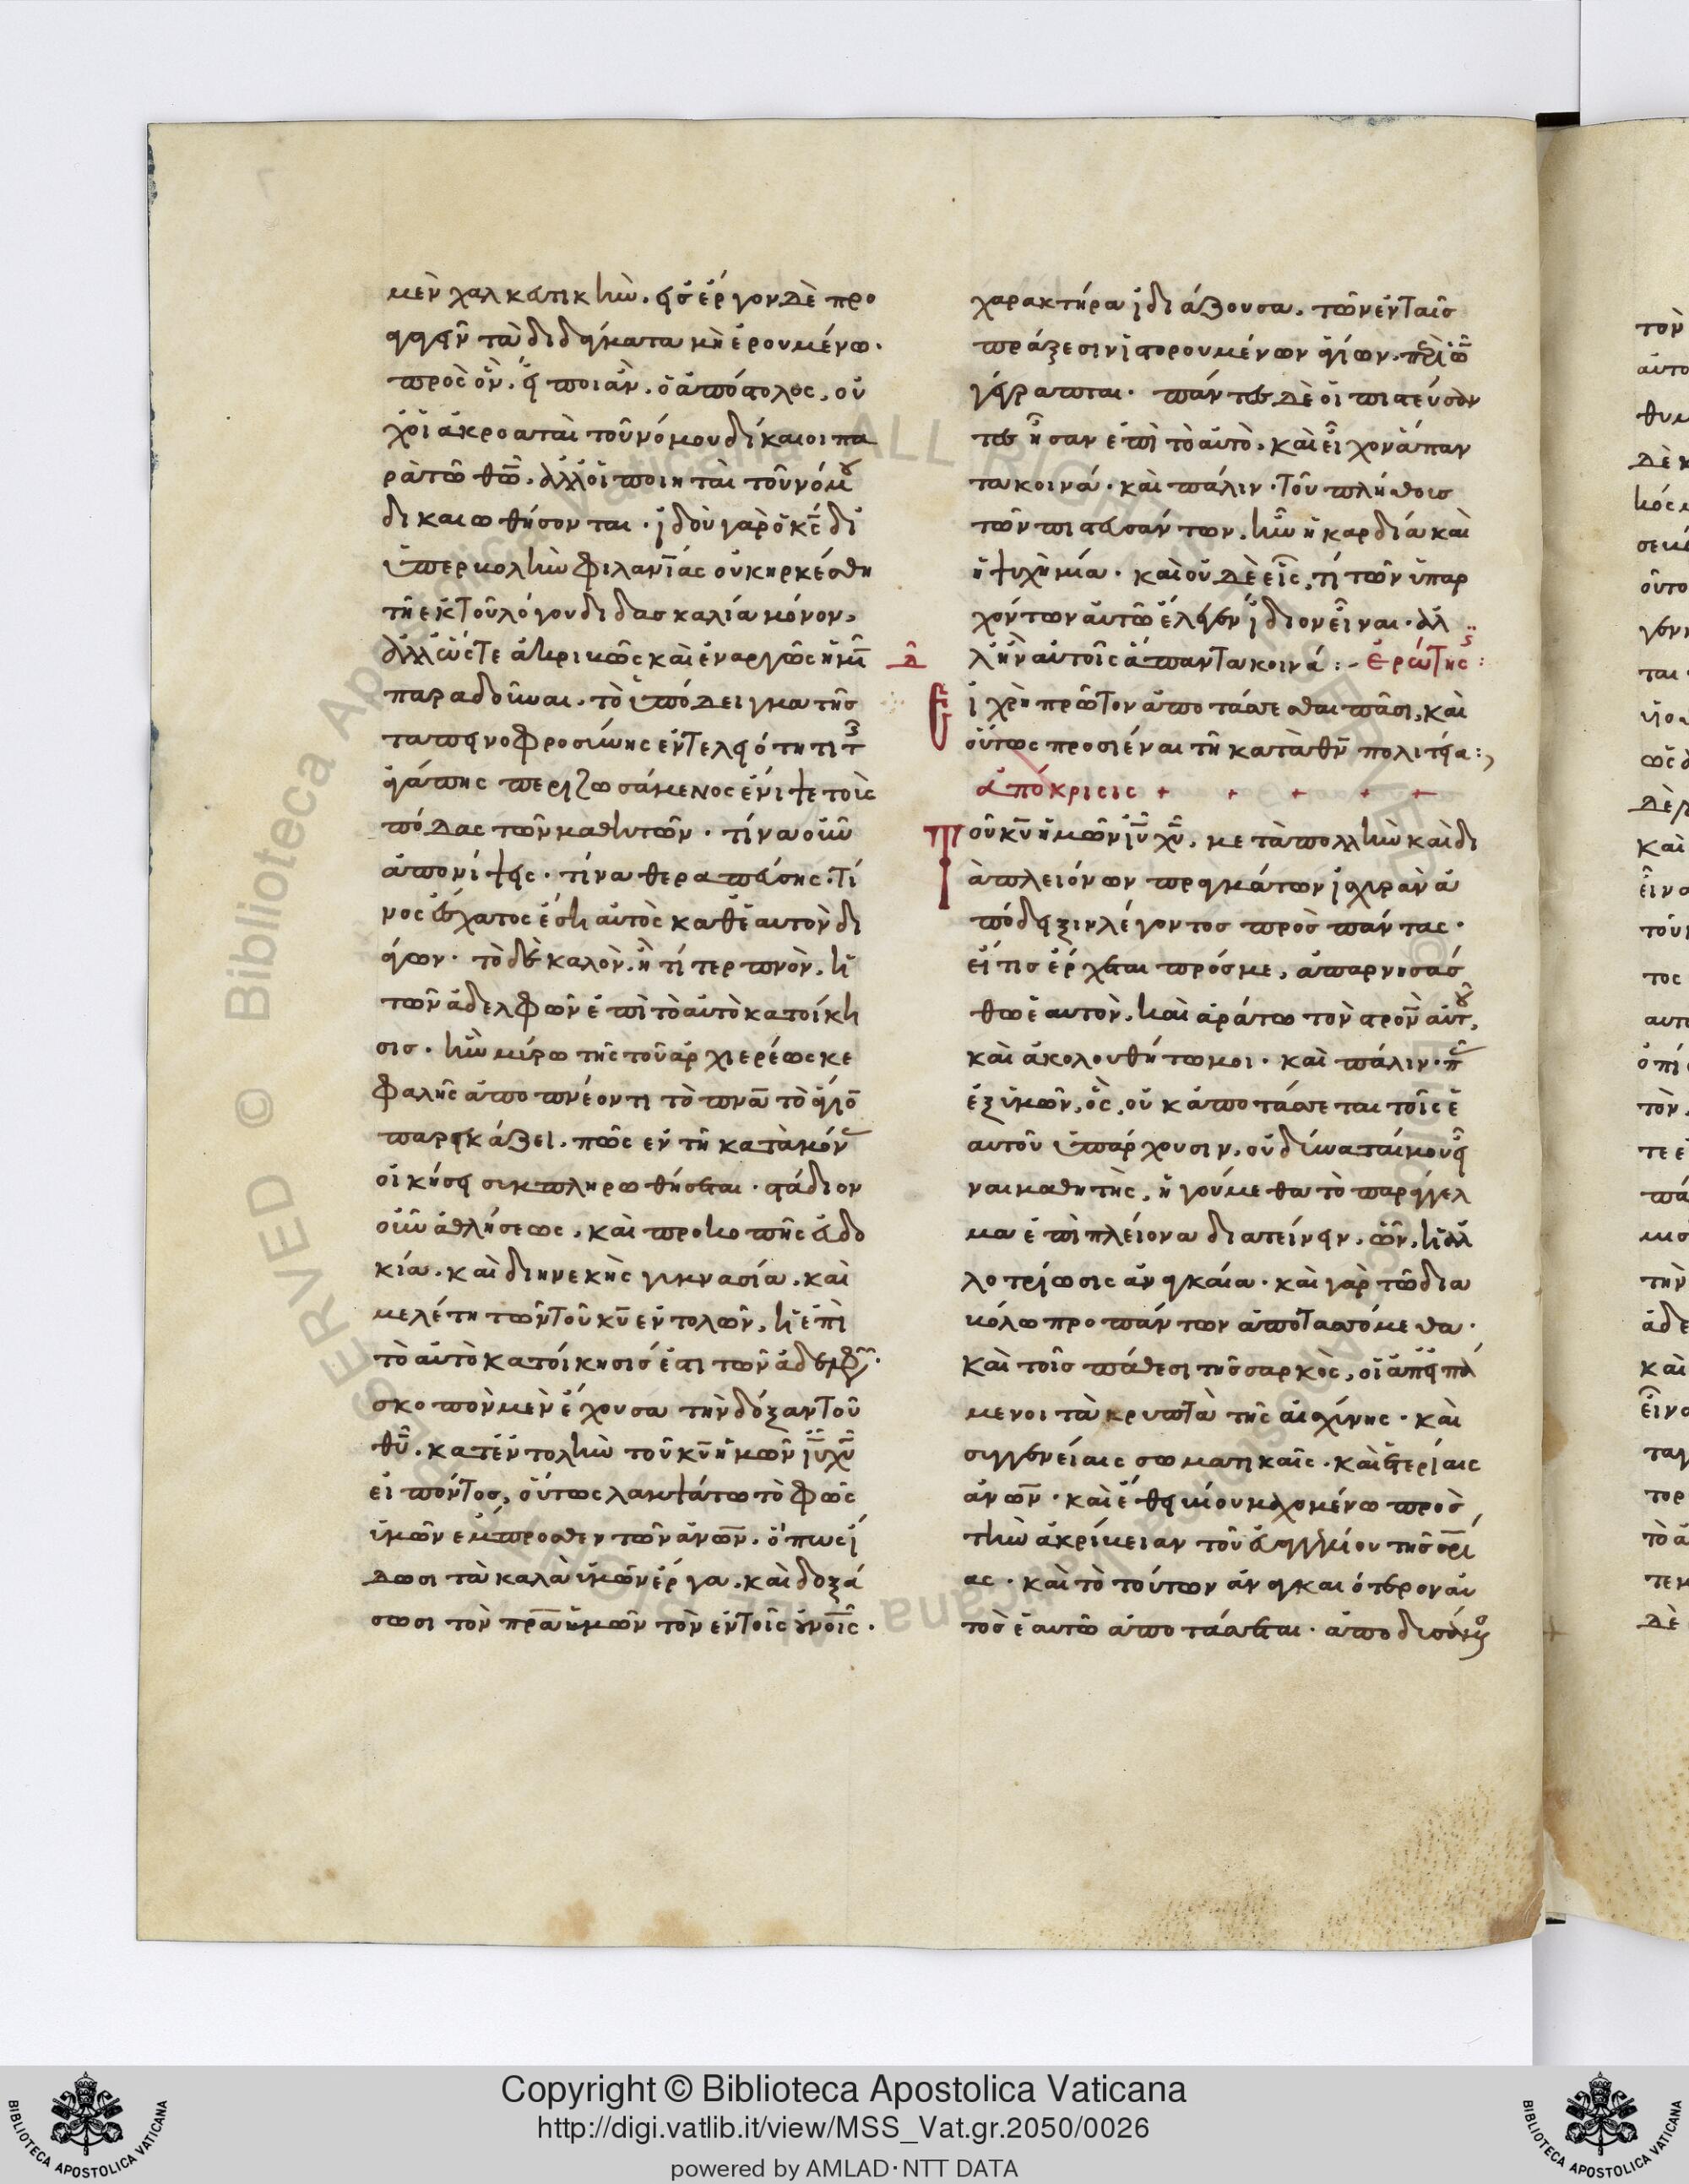 μὲν χαλκευτικὴν. εἰς ἔργον δὲ προ
αγαγεῖν τὰ διδάγματα μὴ αἱρουμένω.
πρὸς ὃν. εἴποι ἂν. ὁ ἀπόστολος, οὐ
χ οἱ ἀκροαταὶ τοῦ νόμου δίκαιοι πα
ρὰ τῶ θῶ. ἀλλ οἱ ποιηταὶ τοῦ νόμου
δικαιωθήσονται. ἰδοὺ γὰρ ὁ κς δι
ὑπερβολὴν φιλανιας οὐκ ἠρκέσθη
τῆ ἐκ τοῦ λόγου διδασκαλία μόνον,
ἀλλ ὥστε ἀκριβῶς καὶ ἐναργῶς ἡμῖν
παραδοῦναι. τὸ ὑπόδειγμα τῆς
ταπεινοφροσύνης ἐν τελειότητι τῆς
ἀγάπης περιζωσάμενος ἔνιψε τοὺς
πόδας τῶν μαθητῶν. τίνα οὖν
ἀπονίψεις. τίνα θεραπεύσης. τί
νος ἔσχατος ἔση αὐτὸς καθ ἑαυτὸν δι
άγων. τὸ δὲ καλὸν. ἢ τί τερπνὸν. ἡ
τῶν ἀδελφῶν ἐπὶ τὸ αὐτὸ κατοίκη
σις. ἣν μύρω τῆς τοῦ ἀρχιερέως κε
φαλῆς ἀποπνέοντι τὸ πνα τὸ ἅγιον
παρεικάζει. πῶς ἐν τῆ κατὰ μόνας
οἰκήσει συμπληρωθήσεται. στάδιον
οὖν ἀθλήσεως, καὶ προκοπῆς εὐοδο
κία. καὶ διηνεκὴς γυμνασία. καὶ
μελέτη τῶν τοῦ κυ ἐντολῶν. ἡ ἐπὶ
τὸ αὐτὸ κατοίκησίς ἐστι τῶν ἀδελφῶν.
σκοπὸν μὲν ἔχουσα τὴν δόξαν τοῦ
θυ. κατ ἐντολὴν τοῦ κυ ἡμῶν ιυ χυ
εἰπόντος, οὕτως λαμψάτω τὸ φῶς
ὑμῶν ἔμπροσθεν τῶν ανων. ὅπως ἴ
δωσι τὰ καλὰ ὑμῶν ἔργα. καὶ δοξά
σωσι τὸν πρα ὑμῶν τὸν ἐν τοῖς οὐνοις.
χαρακτήρα ἰδιάζουσα. τῶν ἐν ταῖς
πράξεσιν ἱστορουμένων ἁγίων. περὶ ὧν
γέγραπται. πάντες δὲ οἱ πιστεύσαν
τες ἦσαν ἐπὶ τὸ αὐτὸ. καὶ εἶχον ἅπαν
τα κοινά. καὶ πάλιν. τοῦ πλήθους
τῶν πιστευσάντων. ἦν ἡ καρδία καὶ
ἡ ψυχὴ μία. καὶ οὐδὲ εἷς, τί τῶν ὑπαρ
χόντων αὐτῶ ἔλεγεν ἴδιον εἶναι. ἀλ
λ ἦν αὐτοῖς ἅπαντα κοινά:- Ἐρώτησις:
Εἰ χρὴ πρῶτον ἀποτάσσεσθαι πᾶσι, καὶ
οὕτως προσιέναι τῆ κατὰ θν πολιτεία:
ἀπόκρισις + + + + +
Τοῦ κυ ἡμῶν ιυ χυ. μετὰ πολλὴν καὶ δι
ὰ πλειόνων πραγμάτων ἰσχυρὰν ἀ
πόδειξιν λέγοντος πρὸς πάντας.
εἴ τις ἔρχεται πρός με, ἀπαρνησάσ
θω ἑαυτὸν. καὶ ἀράτω τὸν στρον αὐτοῦ,
καὶ ἀκολουθήτω μοι. καὶ πάλιν. πᾶς
ἐξ ὑμῶν, ὃς, οὐκ ἀποτάσσεται τοῖς ἑ
αυτοῦ ὑπάρχουσιν. οὐ δύναταί μου εἶ
ναι μαθητὴς, ἡγούμεθα τὸ παράγγελ
μα ἐπὶ πλείονα διατείνειν. ὧν. ἡ ἀλ
λοτρίωσις ἀναγκαία. καὶ γὰρ τῶ δια
βόλω προπάντων ἀποτασσόμεθα.
καὶ τοῖς πάθεσι τῆς σαρκὸς, οἱ ἀπειπά
μενοι τὰ κρυπτὰ τῆς αἰσχύνης. καὶ
συγγενείαις σωματικαῖς. καὶ ἑταιρίαις
ανων. καὶ ἔθει βίου μαχομένω πρὸς
τὴν ἀκρίβειαν τοῦ εὐαγγελίου τῆς σρι
ας. καὶ τὸ τούτων ἀναγκαιότερον αὐ
τὸς ἑαυτῶ ἀποτάσσεται. ἀποδυσάμενος